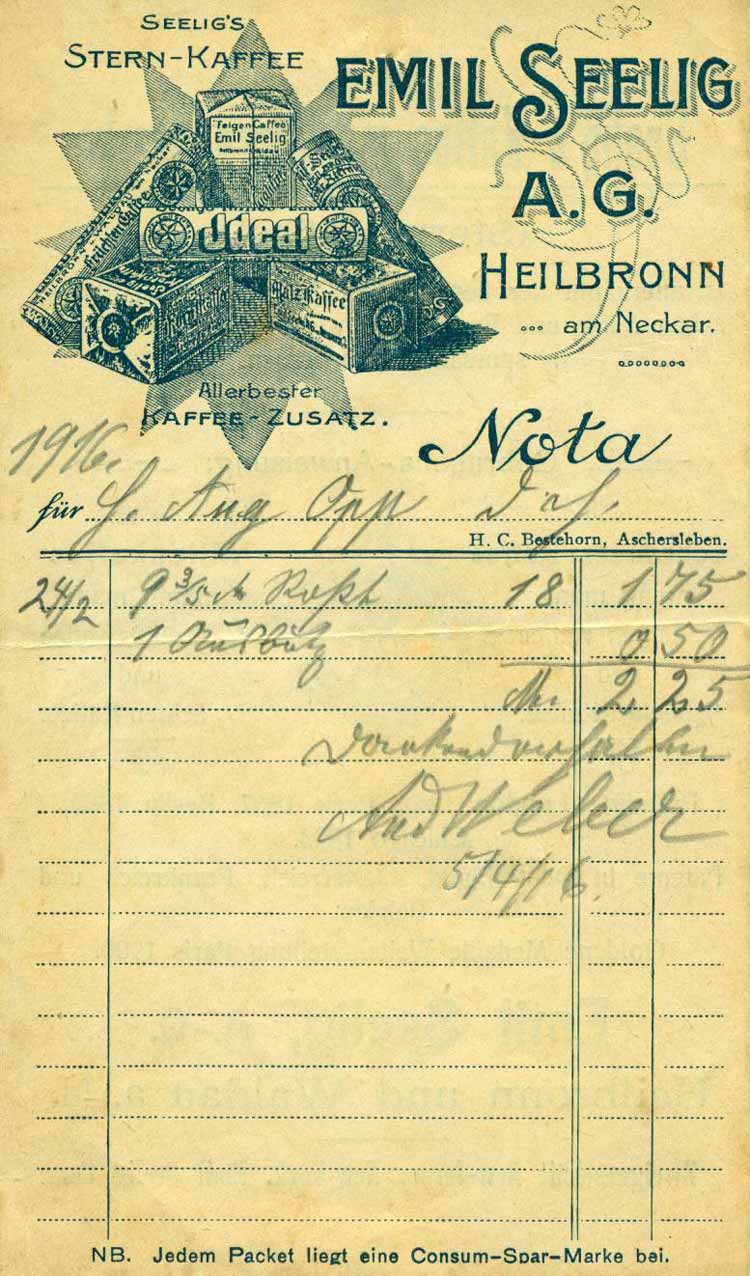 SEELIG'S
STERN-KAFFEE
EMIL SEELIG
A.G.
HEILBRONN
am Neckar.
Feigen Caffee
Emil Seelig
Jdeal
Malz Kaffee
Allerbester
KAFFEE-ZUSATZ.
Nota
1916.
für H. Aug Opp
H. C. Bestehorn, Aschersleben.
24/2 9 3/5 18 1 75
1 0 50
M. 2 25
Dankend erhalten
And Weber
5/4/16.
NB. Jedem Packet liegt eine Consum-Spar-Marke bei.